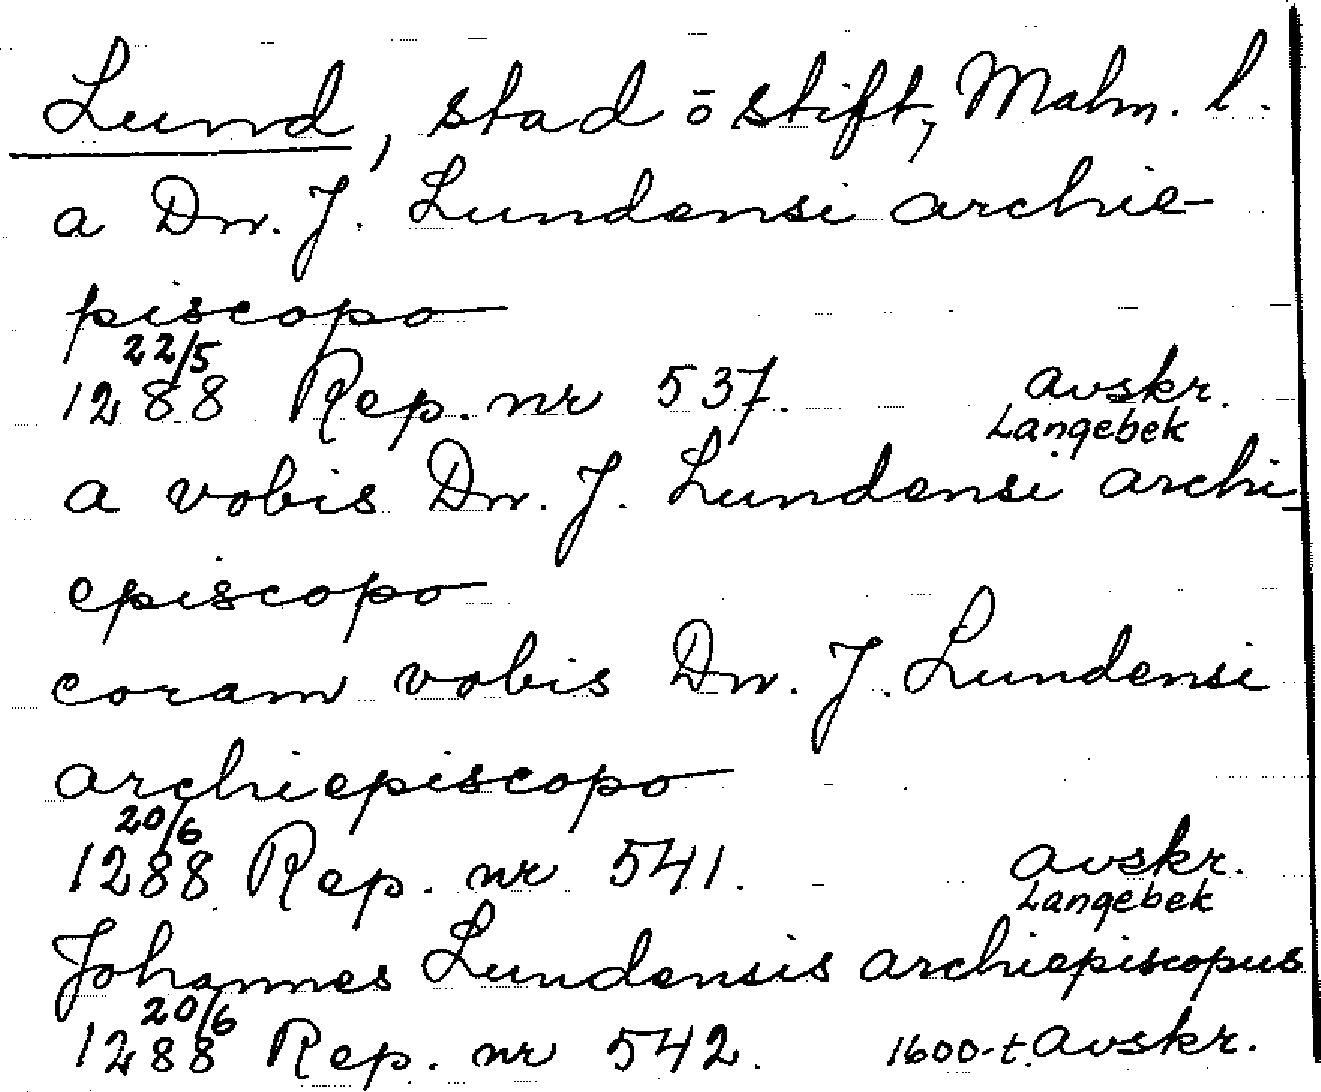 Lund, stad o stift, Malm. l.
a Dn. J. Lundensi archie-
piscopo
22/5
1288 Rep. nr 537. avskr.
Langebek
a vobis Dn. J. Lundensi archi-
episcopo
coram vobis Dn. J. Lundensi
archiepiscopo
20/6
1288 Rep. nr 541. avskr.
Langebek
Johannes Lundensis archiepiscopus
20/6
1288 Rep. nr 542. 1600-t. avskr.